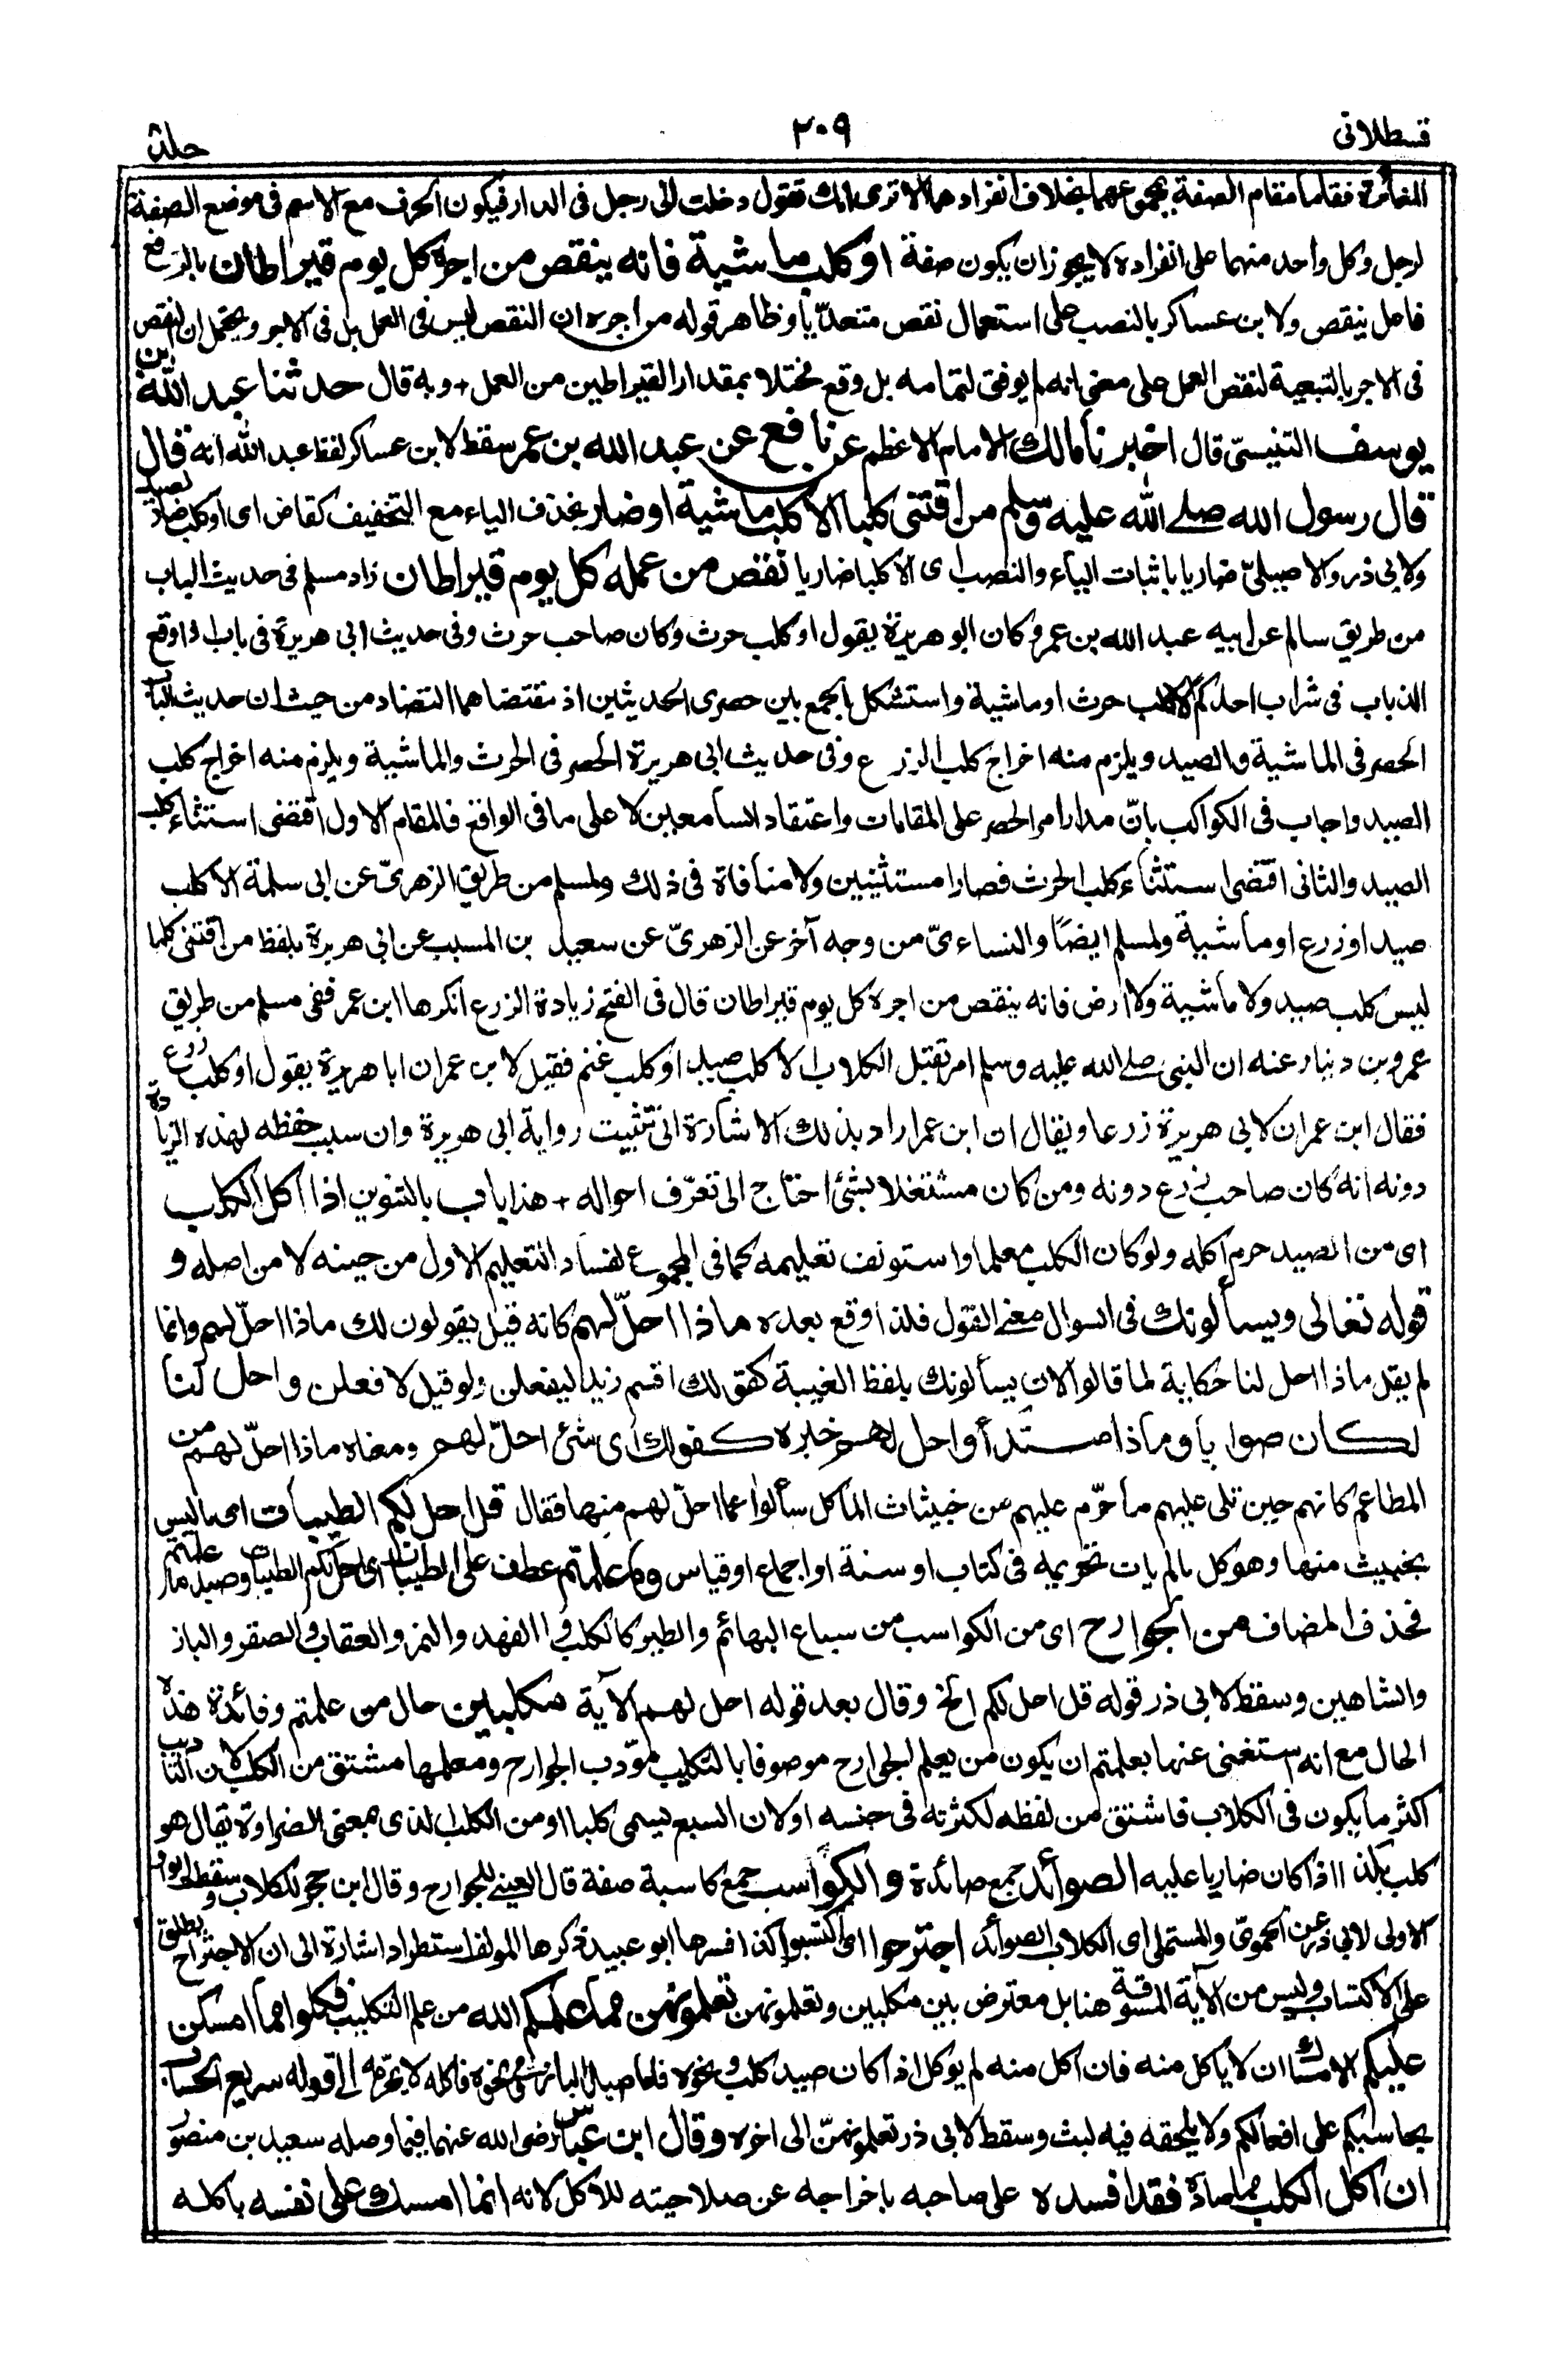 قسطلانى ٢٠٩ جلد
المغائرة فقاما مقام الصفة بمجموعهما بخلاف انفرادهما الا ترى انك تقول دخلت الى رجل فى الدار فيكون الحرف مع الاسم فى موضع الصفة
لرجل وكل واحد منهما على انفراده لا يجوز ان يكون صفة او كلب ماشية فانه ينقص من اجره كل يوم قيراطان بالرفع
فاعل ينقص ولابن عساكر بالنصب على استعمال نقص متعديا وظاهر قوله من اجره ان النقص ليس فى العمل بل فى الاجر ويحتمل ان النقص
فى الاجر بالتبعية لنقص العمل على معنى انه لم يوفق لتمامه بل وقع مختلا بمقدار القيراطين من العمل + وبه قال حدثنا عبد الله بن
يوسف التنيسىّ قال اخبرنا مالك الامام الاعظم عن نافع عن عبد الله بن عمر سقط لابن عساكر لفظ عبد الله انه قال
قال رسول الله صلے الله عليه وسلم من اقتنى كلبا الا كلب ماشية او ضار بحذف الياء مع التخفيف كقاض اى او كلب ضار لصيد
ولابى ذر والاصيلىّ ضاريا باثبات الياء والنصب اى الا كلبا ضاريا نقص من عمله كل يوم قيراطان زاد مسلم فى حديث الباب
من طريق سالم عن ابيه عبد الله بن عمر وكان ابو هريرة يقول او كلب حرث وكان صاحب حرث وفى حديث ابى هريرة فى باب اذا وقع
الذباب فى شراب احدكم الا كلب حرث او ماشية واستشكل الجمع بين حصرى الحديثين اذ مقتضاهما التضاد من حيث ان حديث الباب
الحصر فى الماشية والصيد ويلزم منه اخراج كلب الزرع وفى حديث ابى هريرة الحصر فى الحرث والماشية ويلزم منه اخراج كلب
الصيد واجاب فى الكواكب بانّ مدار امر الحصر على المقامات واعتقاد السامعين لا على ما فى الواقع فالمقام الاول اقتضى استثناء كلب
الصيد والثانى اقتضى استثناء كلب الحرث فصارا مستثنيين ولا منافاة فى ذلك ولمسلم من طريق الزهرىّ عن ابى سلمة الا كلب
صيد او زرع او ماشية ولمسلم ايضًا والنساءىّ من وجه آخر عن الزهرىّ عن سعيد بن المسيب عن ابى هريرة بلفظ من اقتنى كلبا
ليس كلب صيد ولا ماشية ولا ارض فانه ينقص من اجره كل يوم قيراطان قال فى الفتح زيادة الزرع انكرها ابن عمر ففى مسلم من طريق
عمرو بن دينار عنه ان النبى صلے الله عليه وسلم امر بقتل الكلاب الا كلب صيد او كلب غنم فقيل لابن عمر ان ابا هريرة يقول او كلب زرع
فقال ابن عمر ان لابى هريرة زرعا ويقال ان ابن عمر اراد بذلك الاشارة الى تثبيت رواية ابى هريرة وان سبب حفظه لهذه الزيادة
دونه انه كان صاحب زرع دونه ومن كان مشتغلا بشئ احتاج الى تعرّف احواله + هذا باب بالتنوين اذا اكل الكلب
اى من الصيد حرم اكله ولو كان الكلب معلما واستونف تعليمه كما فى المجموع لفساد التعليم الاول من حينه لا من اصله و
قوله تعالى ويسألونك فى السوال معنى القول فلذا وقع بعده ماذا احلّ لهم كانه قيل يقولون لك ماذا احلّ لهم وانما
لم يقل ماذا احل لنا حكاية لما قالوا لان يسألونك بلفظ الغيبة كقولك اقسم زيد ليفعلن ولو قيل لافعلن واحل لنا
لكان صوابا وماذا مبتدأ واحل لهم خبره كقولك اى شئ احلّ لهم ومعناه ماذا احلّ لهم من
المطاعم كانهم حين تلى عليهم ما حرّم عليهم من خبيثات المآكل سألوا عما احلّ لهم منها فقال قل احل لكم الطيبات اى ما ليس
بخبيث منها وهو كل ما لم يات تحريمه فى كتاب او سنة او اجماع او قياس وما علمتم عطف على الطيبات اى احل لكم الطيبات وصيد ما علمتم
فحذف المضاف من الجوارح اى من الكواسب من سباع البهائم والطير كالكلب والفهد والنمر والعقاب والصقر والباز
والشاهين وسقط لابى ذر قوله قل احل لكم الخ وقال بعد قوله احل لهم الآية مكلبين حال من علمتم وفائدة هذه
الحال مع انه استغنى عنها بعلمتم ان يكون من يعلم الجوارح موصوفا بالتكليب مؤدب الجوارح ومعلمها مشتق من الكلب لان التاديب
اكثر ما يكون فى الكلاب فاشتق من لفظه لكثرته فى جنسه او لان السبع يسمى كلبا او من الكلب الذى بمعنى الضراوة يقال هو
كلب بكذا اذا كان ضاريا عليه الصوائد جمع صائدة والكواسب جمع كاسبة صفة قال العينے للجوارح وقال ابن حجر للكلاب وسقط الواو
الاولى لابى ذر عن الحموىّ والمستملى اى الكلاب الصوائد اجترحوا اى اكتسبوا كذا فسرها ابو عبيد ذكرها المولف استطرادا اشارة الى ان الاجتراح يطلق
على الاكتساب وليس من الآية المسوقة هنا بل معترض بين مكلبين وتعلمونهن تعلمونهن مما علمكم الله من علم التكليب فكلوا مما امسكن
عليكم الامساك ان لا ياكل منه فان اكل منه لم يوكل اذا كان صيد كلب ونحوه فاما صيد الباز ونحوه فاكله لا يحرمه الے قوله سريع الحساب
يحاسبكم على افعالكم ولا يلحقه فيه لبث وسقط لابى ذر تعلمونهنّ الى اخره وقال ابن عباس رضى الله عنهما فيما وصله سعيد بن منصور
ان اكل الكلب مما صاده فقد افسده على صاحبه باخراجه عن صلاحيته للاكل لانه انما امسك على نفسه باكله